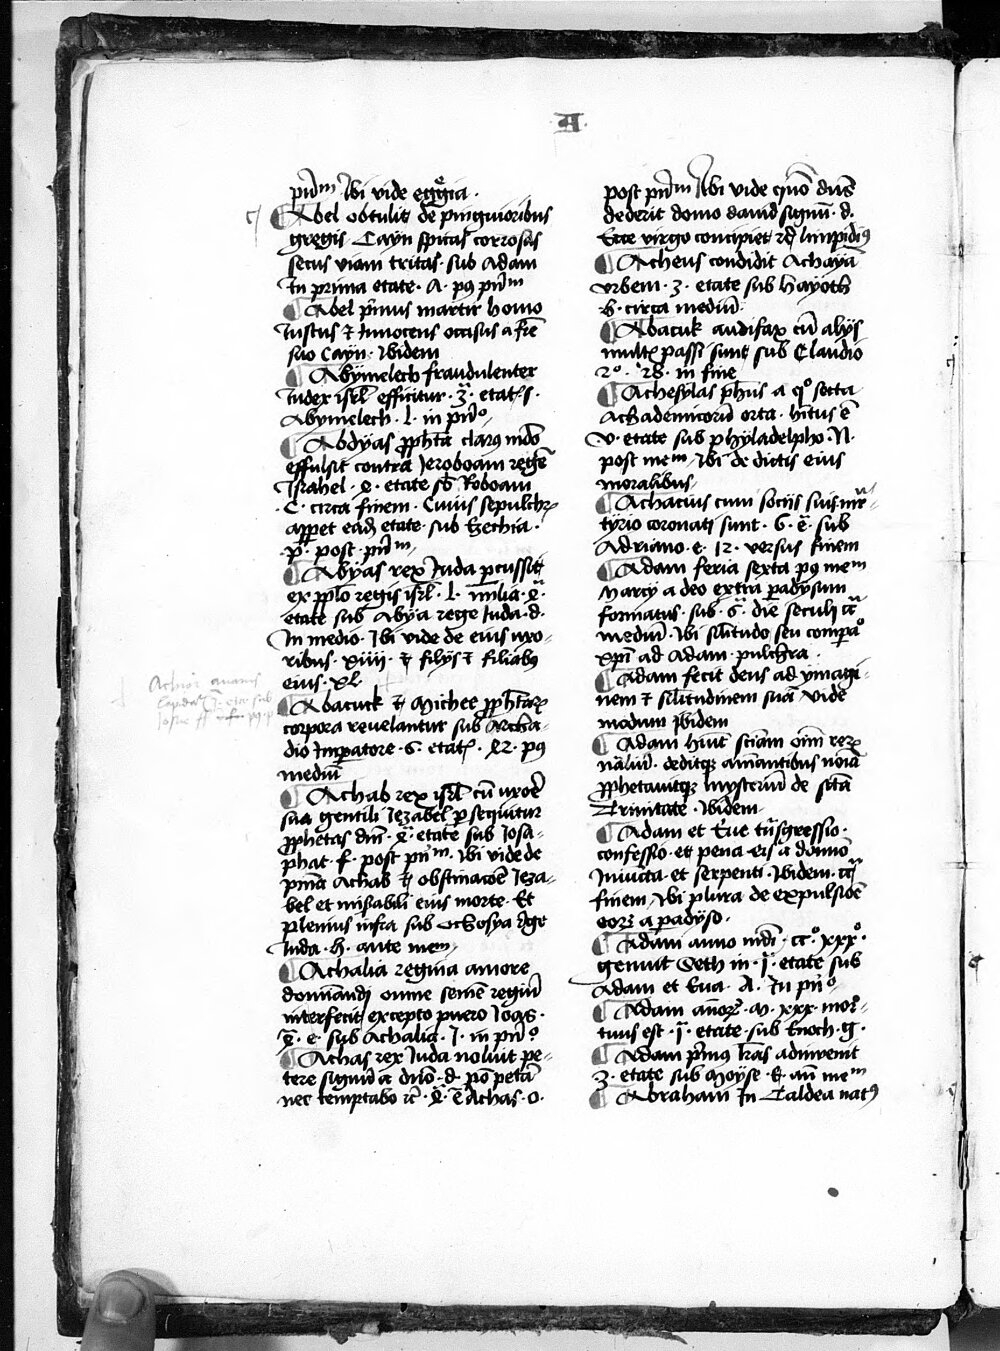 A
pn̄m. Ibi vide egrͤgia.
Abel obtulit de pinguioribus
gregis Cayn spicas corrosas
secus viam tritas. sub Adam
In prima etate. A. pꝰ pn̄m
Abel pͥmus martir homo
Iustus ⁊ Innocens occisus a frē
suo Cayn. Ibidem
Abymelech fraudulenter
Iudex isrl̄ efficitur. 3ͣ. etatꝭ. s.
Abymelech. l. in pn̄o
Abdyas ꝓph̄ta clarꝰ mdō
effulsit contra Ieroboam regē
Israhel. etate sb̄ Roboam
C. circa finem. Cuius sepulchꝝ
apꝑet eadē etate sub Ezechia.
p. post pn̄m
Abyas rex Iuda ꝑcussit
ex pplo regis isrl̄. l. milia.
etate sub Abya rege Iuda. d.
In medio. Ibi vide de eius vxo-
ribus. xiiii. ⁊ filijs ⁊ filiabꝰ
eius. xl
Abacuck et Michee ꝓph̄taꝝ
corpora reuelantur sub Archa-
dio Imꝑatore. 6. etatꝭ. pꝰ
mediū
Achab rex isrl̄ cū vxorē
sua gentili Iezabel ꝑsequitur
ꝓphetas dn̄i. etate sub Iosa-
phat. f. post pn̄m. Ibi vide de
pn̄ia Achab et obstinacōe Ieza-
bel et mis̄abili eius morte. Et
plenius infra sub Ochosya rege
Iuda. h. ante mem
Achalia regina amore
domīandi omne semē regiū
interfecit excepto puero Ioas.
e. sub Achalia. I. in pn̄o
Achas rex Iuda noluit pe-
tere signū a dn̄o. d. nō petā
nec temptabo Achas. o.
post pn̄m Ibi vide quō dn̄s
dederit domo dauid signū. d.
Ecce virgo concipiet limpidiꝰ
Acheus condidit Achayā
vrbem. 3. etate sub Hayoth
h. circa mediū
Abacuk audifax cū alijs
multꝭ passi sunt sub Claudio
2º. 28. in fine
Achesylas ph̄us a qͦ secta
Achademicorū orta. hītus ē
v. etate sub phyladelpho. N.
post mem. Ibi de dictis eius
moralibus
Achacius cum socijs suis mr̄-
tyrio coronati sunt. 6. e. sub
Adriano. e. 12. versus finem
Adam feria sexta pꝰ mem
Marcij a deo extra padysum
formatus. sub. 6. die seculi cͣ
mediū. Ibi silītudo seu compaͦ
xpī ad Adam pulchra.
Adam fecit deus ad ymagi-
nem ⁊ silītudinem suā vide
modum Ibidem
Adam hīuit sciam oīm reꝝ
nāliū. deditqꝫ aīmantibus noīa
ꝓphetauitqꝫ mysteriū de scā
Trinitate. Ibidem
Adam et Eue tn̄sgressio.
confessio. et pena eis a domīo
Iniucta et serpenti. Ibidem. cͣ
finem. Ibi plura de expulsiōe
eoꝝ a padyso.
Adam anno mdī. cͦ. xxxͦ.
genuit Seth in. I. etate sub
Adam et Eua. A. In pn̄o
Adam an̄oꝝ. M. xxx. mor-
tuus est. I. etate sub Enoch. g.
Adam pͥmus lr̄as adinuenit
3. etate sub Moyse. E. an̄ mem
Abraham In Caldea natꝰ